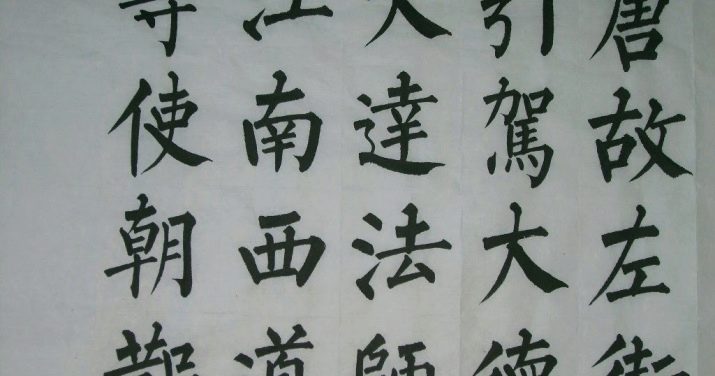 唐故左街
引駕大德
大達法師
江南西道
等使朝散